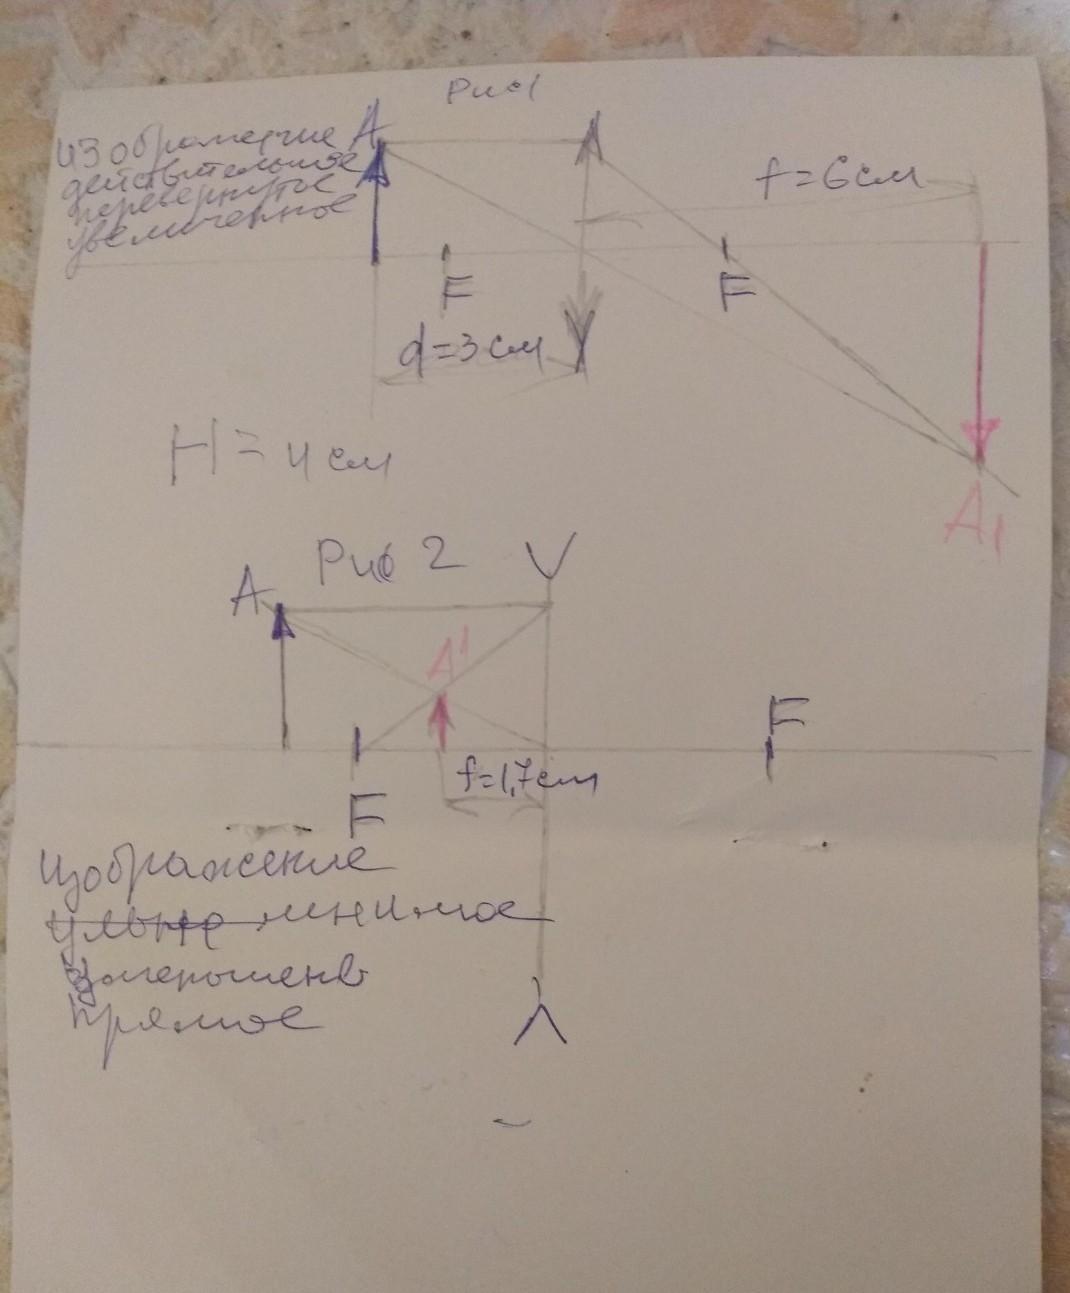 Рис1
изображение А
действительное
перевернутое
увеличенное
f=6см
F
F
d=3см
H=4см
A1
Рис 2
А
A'
F
f=1,7см
F
Изображение
мнимое
уменьшенв
прямое